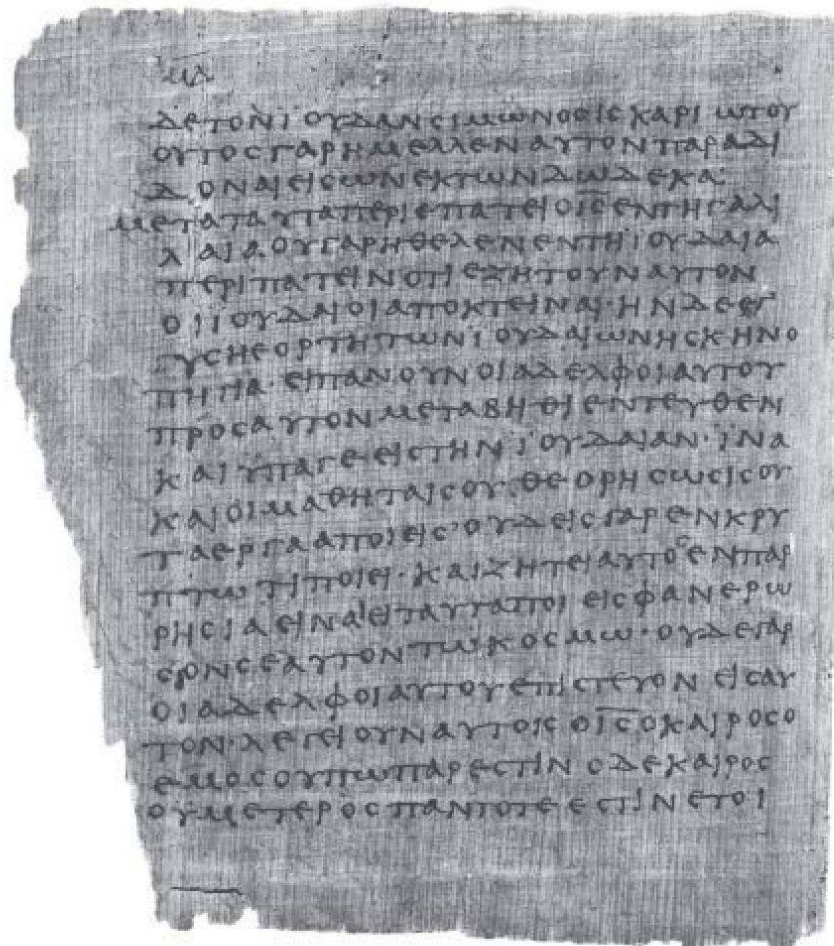 ΜΔ
ΔΕΤΟΝΪΟΥΔΑΝΣΙΜΩΝΟΣΙΣΚΑΡΙΩΤΟΥ
ΟΥΤΟΣΓΑΡΗΜΕΛΛΕΝΑΥΤΟΝΠΑΡΑΔΙ
ΔΟΝΑΙΕΙΣΩΝΕΚΤΩΝΔΩΔΕΚΑ:
ΜΕΤΑΤΑΥΤΑΠΕΡΙΕΠΑΤΕΙΟΙ̅Σ̅ΕΝΤΗΓΑΛΙ
ΛΑΙΑ·ΟΥΓΑΡΗΘΕΛΕΝΕΝΤΗΪΟΥΔΑΙΑ
ΠΕΡΙΠΑΤΕΙΝΟΤΙΕΖΗΤΟΥΝΑΥΤΟΝ
ΟΙΪΟΥΔΑΙΟΙΑΠΟΚΤΕΙΝΑΙ·ΗΝΔΕΕΓ
ΓΥΣΗΕΟΡΤΗΤΩΝΪΟΥΔΑΙΩΝΗΣΚΗΝΟ
ΠΗΓΙΑ·ΕΙΠΑΝΟΥΝΟΙΑΔΕΛΦΟΙΑΥΤΟΥ
ΠΡΟΣΑΥΤΟΝΜΕΤΑΒΗΘΙΕΝΤΕΥΘΕΝ
ΚΑΙΫΠΑΓΕΕΙΣΤΗΝΪΟΥΔΑΙΑΝ·ΪΝΑ
ΚΑΙΟΙΜΑΘΗΤΑΙΣΟΥ·ΘΕΟΡΗΣΩΣΙΣΟΥ
ΤΑΕΡΓΑΑΠΟΙΕΙΣ·ΟΥΔΕΙΣΓΑΡΕΝΚΡΥ
ΠΤΩΤΙΠΟΙΕΙ·ΚΑΙΖΗΤΕΙΑΥΤΟΣΕΝΠΑΡ
ΡΗΣΙΑΕΙΝΑΙΕΙΤΑΥΤΑΠΟΙΕΙΣΦΑΝΕΡΩ
ΣΟΝΣΕΑΥΤΟΝΤΩΚΟΣΜΩ·ΟΥΔΕΓΑΡ
ΟΙΑΔΕΛΦΟΙΑΥΤΟΥΕΠΙΣΤΕΥΟΝΕΙΣΑΥ
ΤΟΝ·ΛΕΓΕΙΟΥΝΑΥΤΟΙΣΟΙ̅Σ̅ΟΚΑΙΡΟΣΟ
ΕΜΟΣΟΥΠΩΠΑΡΕΣΤΙΝΟΔΕΚΑΙΡΟΣ
ΟΥΜΕΤΕΡΟΣΠΑΝΤΟΤΕΕΣΤΙΝΕΤΟΙ